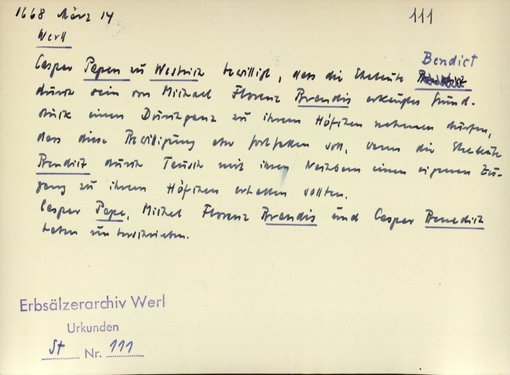 1668 März 14
111
Werl
Bendict
Caspar Papen zu Westrich bewilligt, dass die Eheleute
durch sein von Michael Florenz Brandis erkauftes Grund-
stück einen Durchgang zu ihrem Höfchen nehmen dürfen,
dass diese Bewilligung aber fortfallen soll, wenn die Eheleute
Bendict durch Tausch mit ihren Nachbarn einen eigenen Zu-
gang zu ihrem Höfchen erhalten sollten.
Caspar Pape, Michel Florenz Brandis und Caspar Benedict
haben unterschrieben.
Erbsälzerarchiv Werl
Urkunden
St Nr. 111